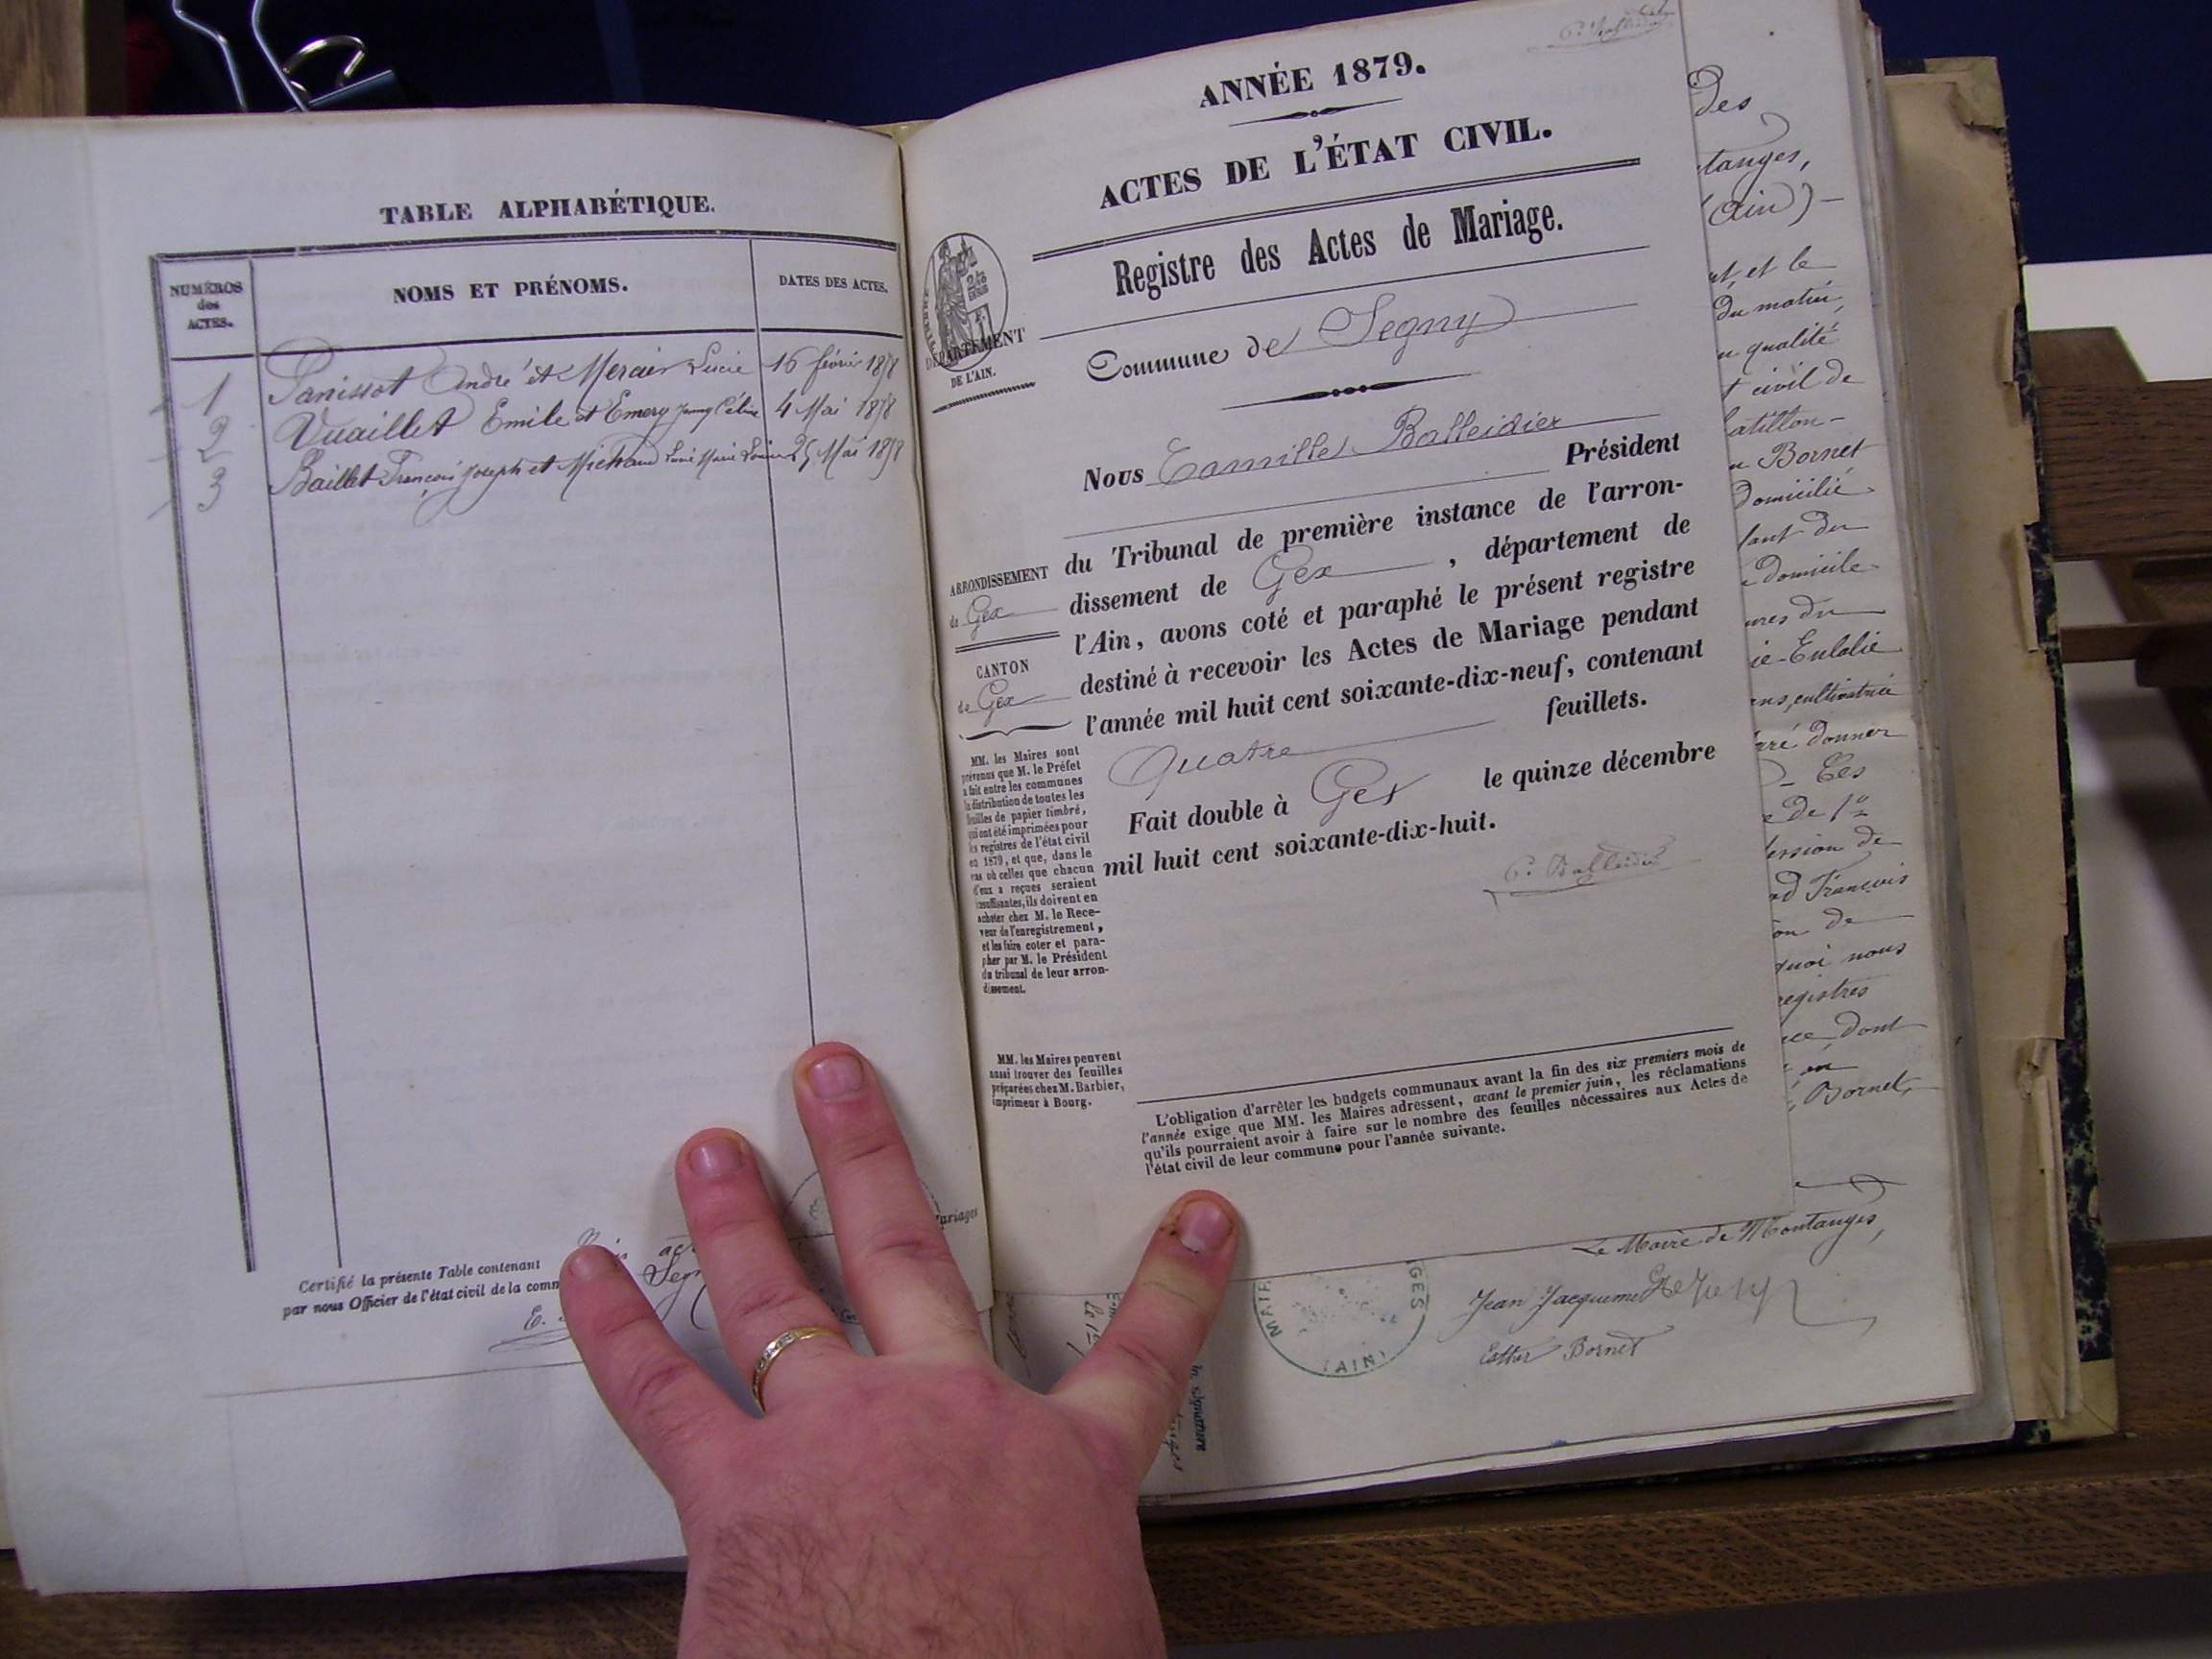 TABLE ALPHABÉTIQUE.
NUMÉROS
des
ACTES.
NOMS ET PRÉNOMS.
DATES DES ACTES.
1 Panissot André et Mercier Lucie 16 février 1878
2 Vuaillet Emile et Emery Jenny Céline 4 Mai 1878
3 Baillet François Joseph et Michaud Marie Louise 25 Mai 1878
Certifié la présente Table contenant
par nous Officier de l'état civil de la comm
E.
ariages
ANNÉE 1879.
ACTES DE L'ÉTAT CIVIL.
Registre des Actes de Mariage.
DÉPARTEMENT
DE L'AIN.
Commune de Segny
Nous Camille Balleidier
Président
du Tribunal de première instance de l'arron-
dissement de Gex, département de
l'Ain, avons coté et paraphé le présent registre
destiné à recevoir les Actes de Mariage pendant
l'année mil huit cent soixante-dix-neuf, contenant
Quatre feuillets.
Fait double à Gex le quinze décembre
mil huit cent soixante-dix-huit.
C. Balleidier
ARRONDISSEMENT
de Gex
CANTON
de Gex
MM. les Maires sont
prévenus que M. le Préfet
a fait entre les communes
la distribution de toutes les
feuilles de papier timbré,
qui ont été imprimées pour
les registres de l'état civil
en 1879, et que, dans le
cas où celles que chacun
d'eux a reçues seraient
insuffisantes, ils doivent en
acheter chez M. le Rece-
veur de l'enregistrement,
et les faire coter et para-
pher par M. le Président
du tribunal de leur arron-
dissement.
MM. les Maires peuvent
aussi trouver des feuilles
préparées chez M. Barbier,
imprimeur à Bourg.
L'obligation d'arrêter les budgets communaux avant la fin des six premiers mois de
l'année exige que MM. les Maires adressent, avant le premier juin, les réclamations
qu'ils pourraient avoir à faire sur le nombre des feuilles nécessaires aux Actes de
l'état civil de leur commune pour l'année suivante.
Des
tanges,
(Ain)-
et le
du matin,
qualité
t civil de
atillon-
Bornet
Domicilié
tant du
Domicile
ures du
ie-Eulalie
ns, cultivatrice
aré donner
Ces
de 1re
ession de
François
on de
quoi nous
registres
dont
en
Bornet,
Le Maire de Montanges,
MAIR GES
(AIN)
Jean Jacquemet
Esther Bornet
la signature